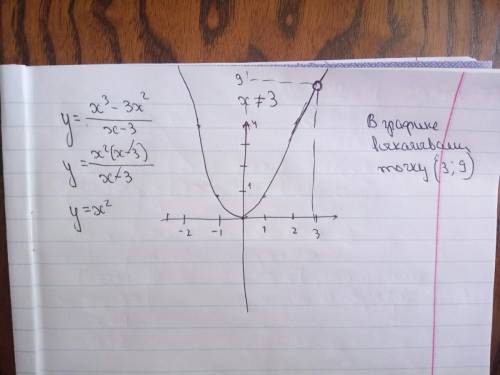 y = (x³ - 3x²)/(x - 3)
y = x²(x-3)/(x-3)
y = x²
9
x ≠ 3
4
1
-2 -1 1 2 3
В графике
выкалываем
точку (3; 9)